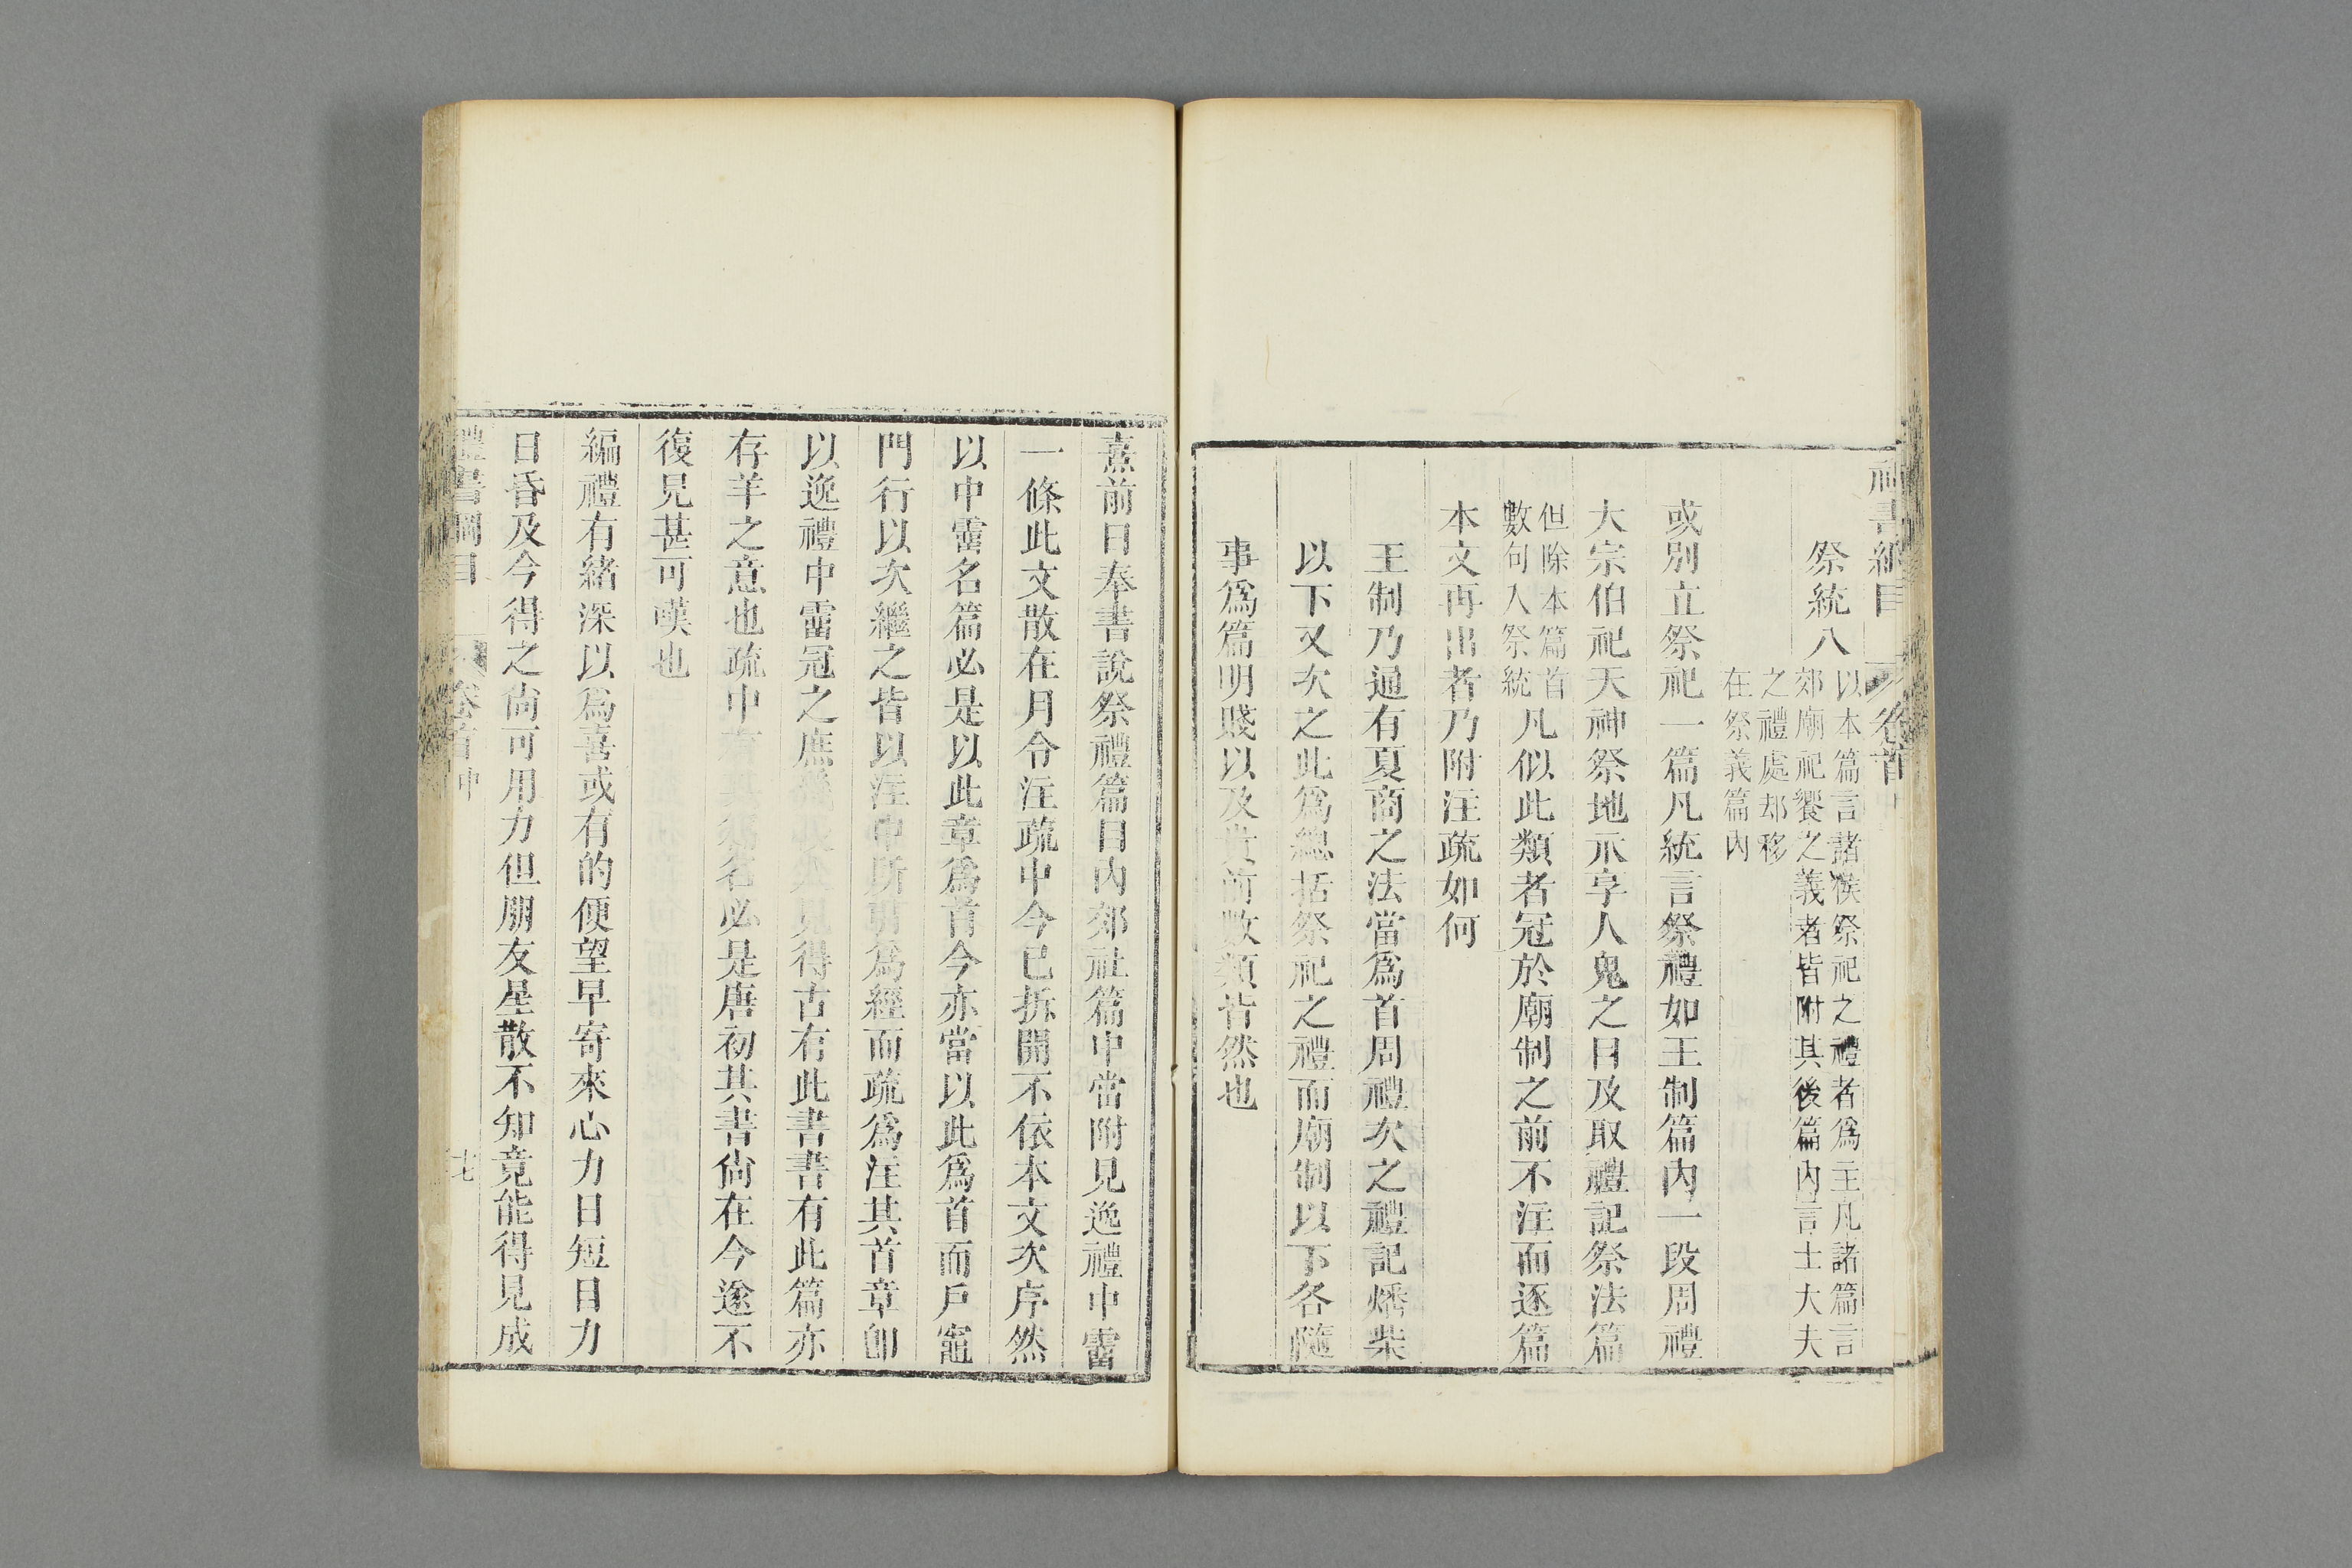 禮書綱目 卷首
祭統八
以本篇言諸侯祭祀之禮者爲主凡諸篇言
郊廟祀饗之義者皆附其後篇内言士大夫
之禮處却移
在祭義篇内
或別立祭祀一篇凡統言祭禮如王制篇内一段周禮
大宗伯祀天神祭地示享人鬼之目及取禮記祭法篇
但除本篇首
數句入祭統
凡似此類者冠於廟制之前不注而逐篇
本文再出者乃附注疏如何
王制乃通有夏商之法當爲首周禮次之禮記燔柴
以下又次之此爲總括祭祀之禮而廟制以下各隨
事爲篇明賤以及貴前數類皆然也
熹前日奉書說祭禮篇目内郊社篇中當附見逸禮中霤
一條此文散在月令注疏中今已拆開不依本文次序然
以中霤名篇必是以此章爲首今亦當以此爲首而戶竈
門行以次繼之皆以注中所引爲經而疏爲注其首章卽
以逸禮中霤冠之庶幾見得古有此書書有此篇亦
存羊之意也疏中名必是唐初其書尙在今遂不
復見甚可嘆也
編禮有緒深以爲喜或有的便望早寄來心力日短目力
日昏及今得之尙可用力但朋友星散不知竟能得見成
禮書綱目 卷首中 十七